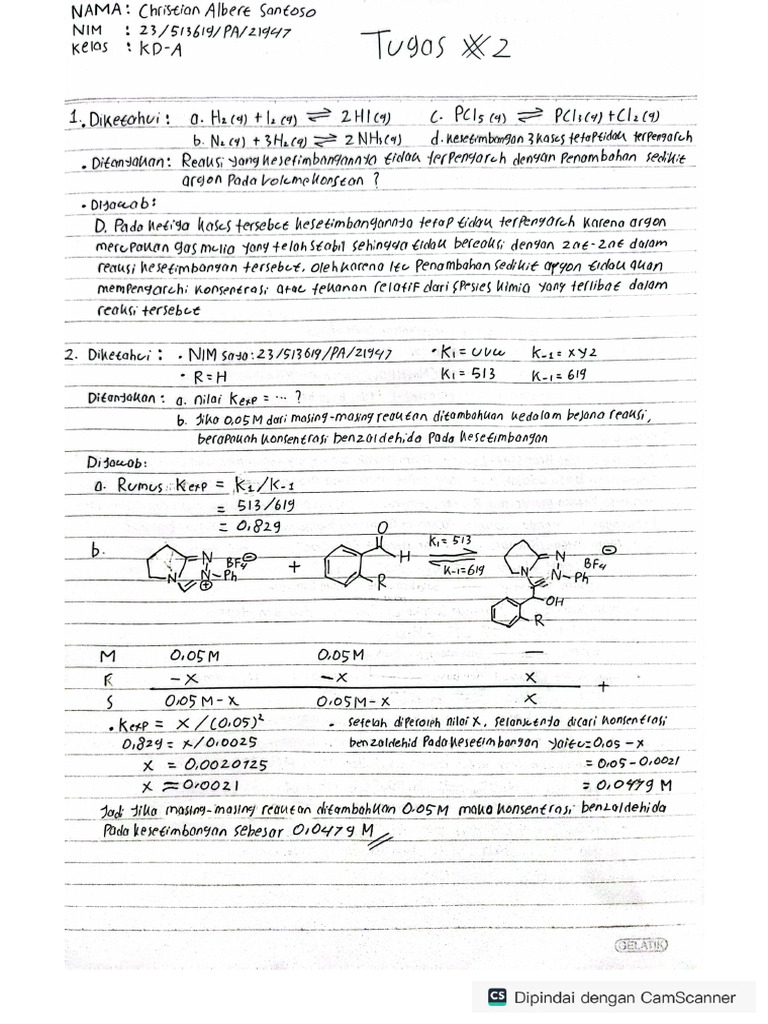 NAMA : Christian Albert Santoso
NIM : 23/513619/PA/21947
Kelas : KD-A
Tugas #2
1. Diketahui : a. H₂(g) + I₂(g) ⇌ 2HI(g) c. PCl₅(g) ⇌ PCl₃(g) + Cl₂(g)
b. N₂(g) + 3H₂(g) ⇌ 2NH₃(g) d. Kesetimbangan 3 kasus tetap tidak terpengaruh
• Ditanyakan : Reaksi yang kesetimbangannya tidak terpengaruh dengan Penambahan sedikit
argon Pada Volume konstan ?
• Dijawab :
D. Pada ketiga kasus tersebut kesetimbangannya tetap tidak terpengaruh karena argon
merupakan gas mulia yang telah stabil sehingga tidak bereaksi dengan zat-zat dalam
reaksi kesetimbangan tersebut. Oleh karena itu Penambahan sedikit argon tidak akan
mempengaruhi konsentrasi atau tekanan relatif dari spesies kimia yang terlibat dalam
reaksi tersebut
2. Diketahui : • NIM saya : 23/513619/PA/21947 • K₁ = uvw K₋₁ = xyz
• R = H K₁ = 513 K₋₁ = 619
Ditanyakan : a. nilai Kexp = ... ?
b. Jika 0,05 M dari masing-masing reaktan ditambahkan kedalam bejana reaksi,
berapakah konsentrasi benzaldehida pada kesetimbangan
Dijawab :
a. Rumus : Kexp = K₁/K₋₁
= 513/619
= 0,829
b.
N N N-Ph ⊕ BF₄ ⊖ + O H R K₁ = 513 K₋₁ = 619 N N N-Ph BF₄ ⊖ OH R
M 0,05 M 0,05 M —
R -x -x x +
S 0,05 M - x 0,05 M - x x
• Kexp = x/(0,05)² - setelah diperoleh nilai x, selanjutnya dicari konsentrasi
0,829 = x/0,0025 benzaldehid Pada kesetimbangan yaitu = 0,05 - x
x = 0,0020725 = 0,05 - 0,0021
x ≈ 0,0021 = 0,0479 M
Jadi Jika masing-masing reaktan ditambahkan 0,05 M maka konsentrasi benzaldehida
Pada kesetimbangan sebesar 0,0479 M
GELATIK
CS Dipindai dengan CamScanner